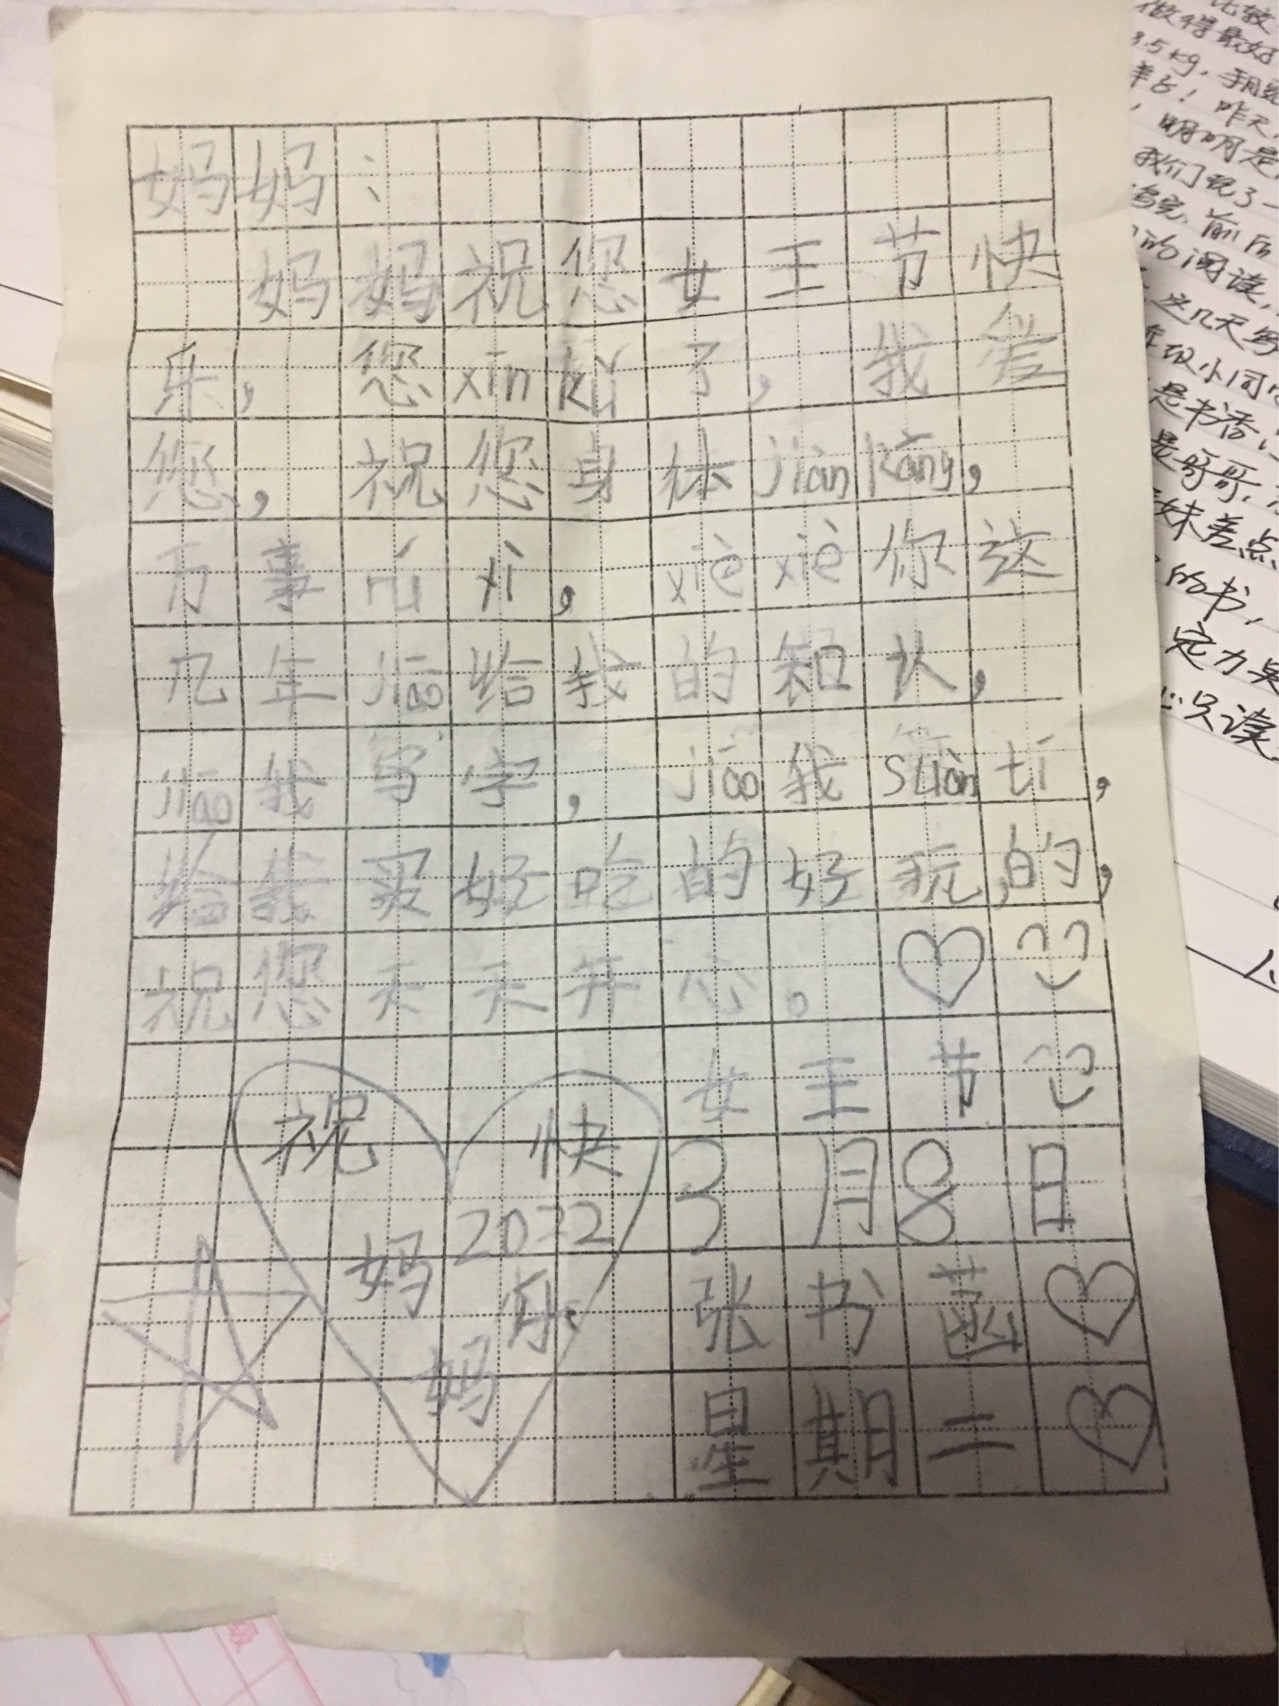 妈妈：
妈妈祝您女王节快
乐，您xīn kǔ了，我爱
您，祝您身体jiàn kāng，
万事rú yì，xiè xiè你这
几年jiāo给我的知认，
jiāo我写字，jiāo我suàn tí，
给我买好吃的好玩的，
祝您天天开心。
女王节
祝 快
3月8日
2022
妈 乐
张书菡
妈
星期二
比较
做得最好
3.5kg，
昨天
，明明是
我们现了一
的阅读，
这几天写
级小同
是书香
是哥哥，
妹差点
的书，
定力
心只读